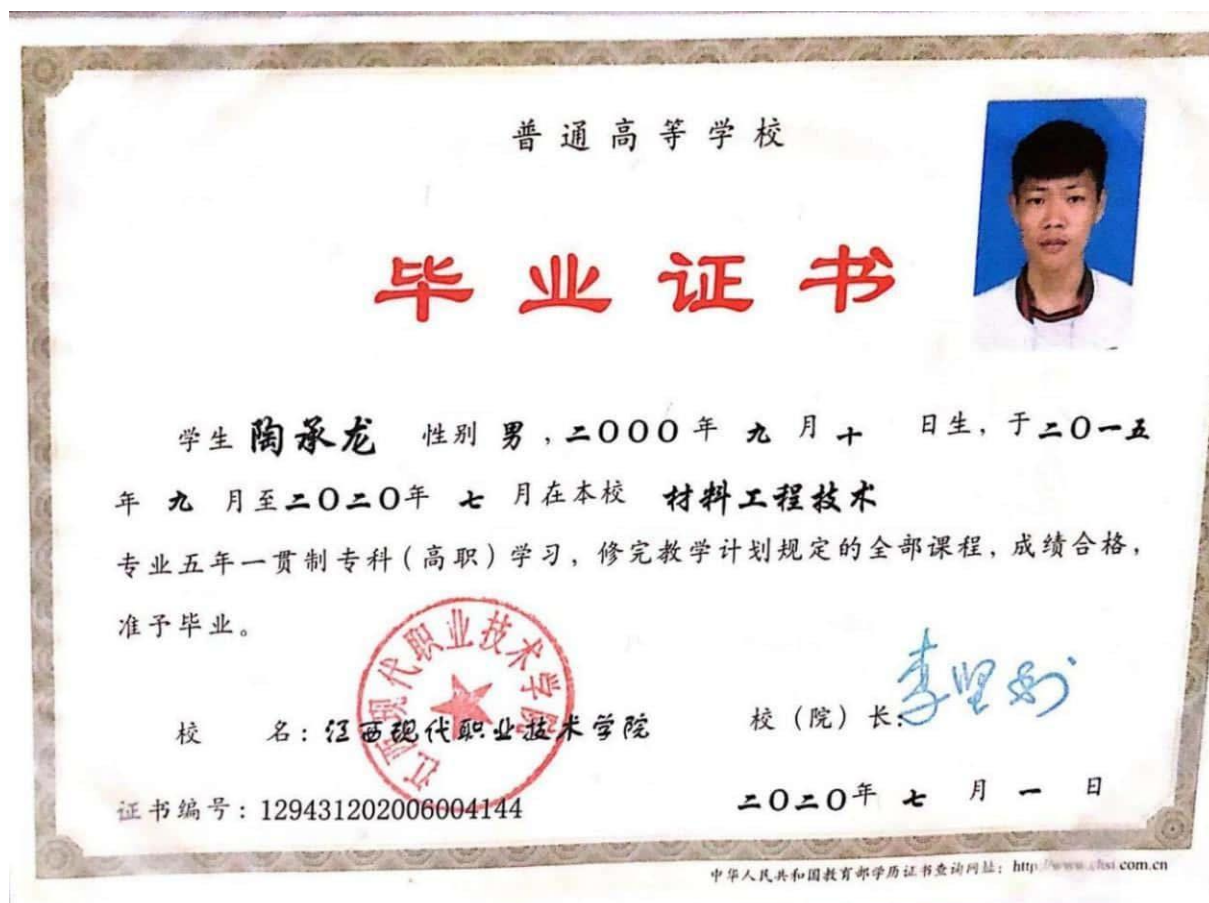 普通高等学校
毕业证书
学生 陶承龙 性别 男，二〇〇〇年 九 月 十 日生，于二〇一五
年 九 月至二〇二〇年 七 月在本校 材料工程技术
专业五年一贯制专科（高职）学习，修完教学计划规定的全部课程，成绩合格，
准予毕业。
江西现代职业技术学院
校 名：江西现代职业技术学院
校（院）长：
证书编号：129431202006004144
二〇二〇年 七 月 一 日
中华人民共和国教育部学历证书查询网址：http://www.chsi.com.cn